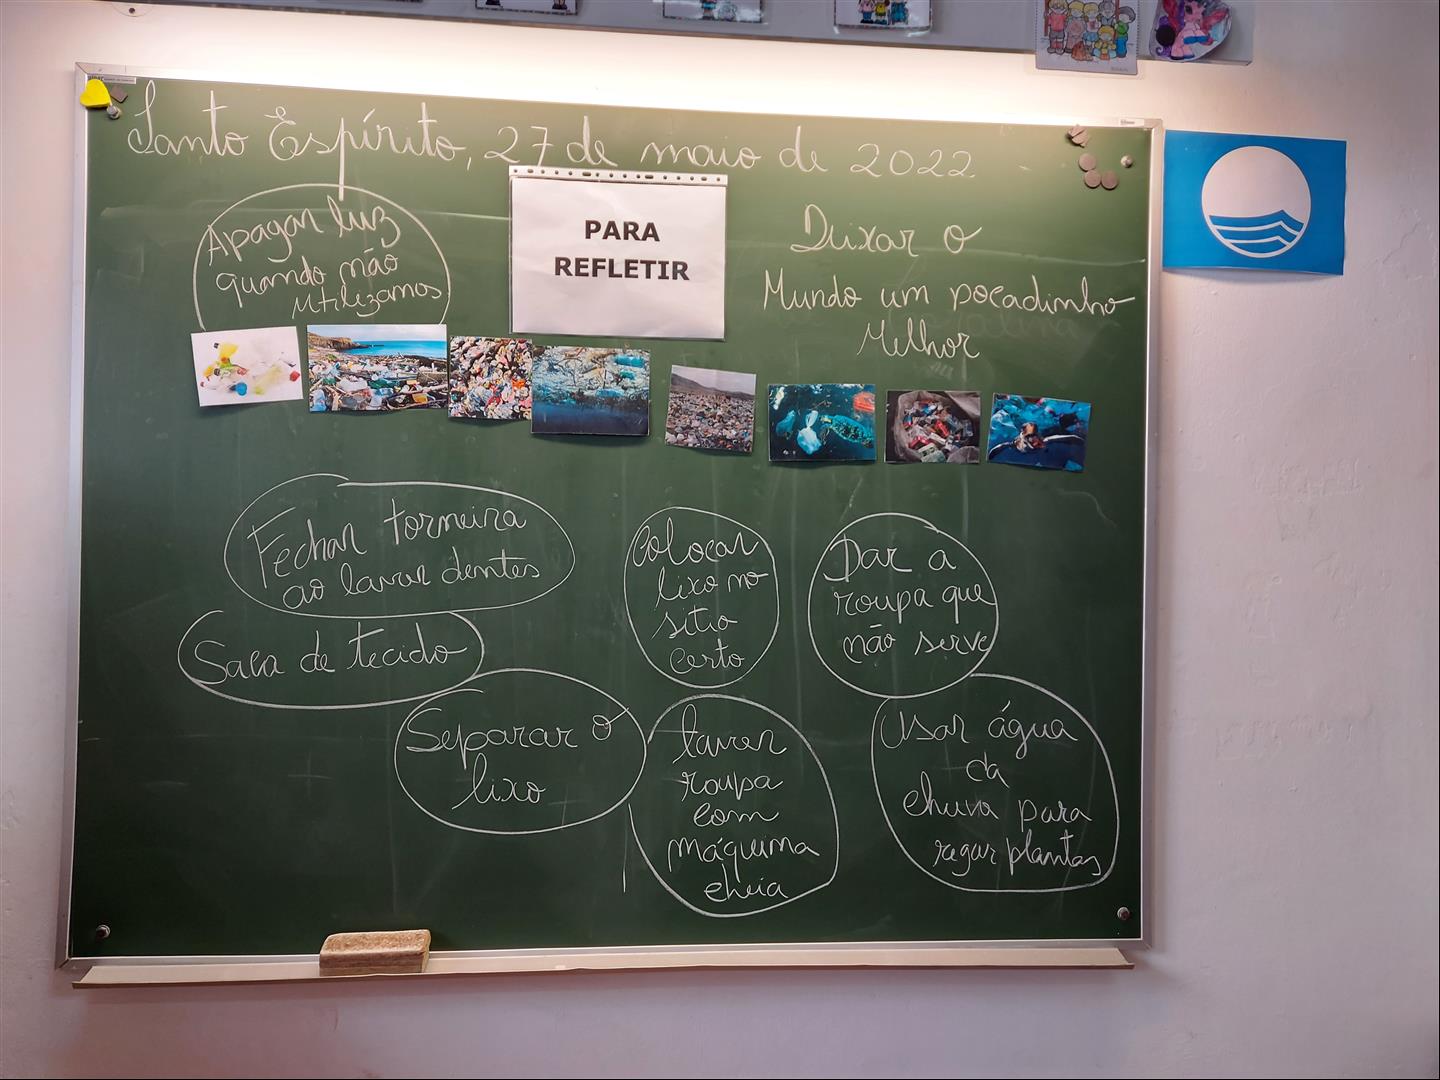 Santo Espírito, 27 de maio de 2022
Apagar luz
quando não
utilizamos
PARA
REFLETIR
Deixar o
Mundo um pocadinho
Melhor
Fechar torneira
ao lavar dentes
Saca de tecido
Separar o
lixo
Colocar
lixo no
sítio
certo
Lavar
roupa
com
máquina
cheia
Dar a
roupa que
não serve
Usar água
da
chuva para
regar plantas